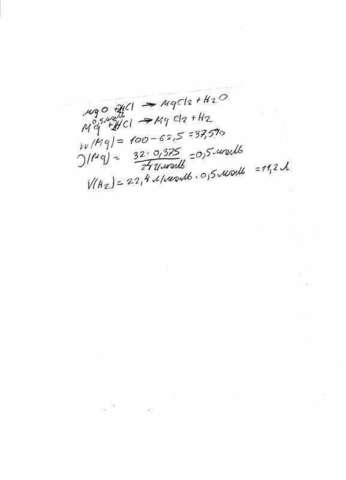 MgO + 2HCl → MgCl2 + H2O
0,5моль
Mg + 2HCl → MgCl2 + H2
W(Mg) = 100-62,5 = 37,5%
ν(Mg) = 32·0,375 / 24г/моль = 0,5моль
V(H2) = 22,4 л/моль · 0,5 моль = 11,2 л